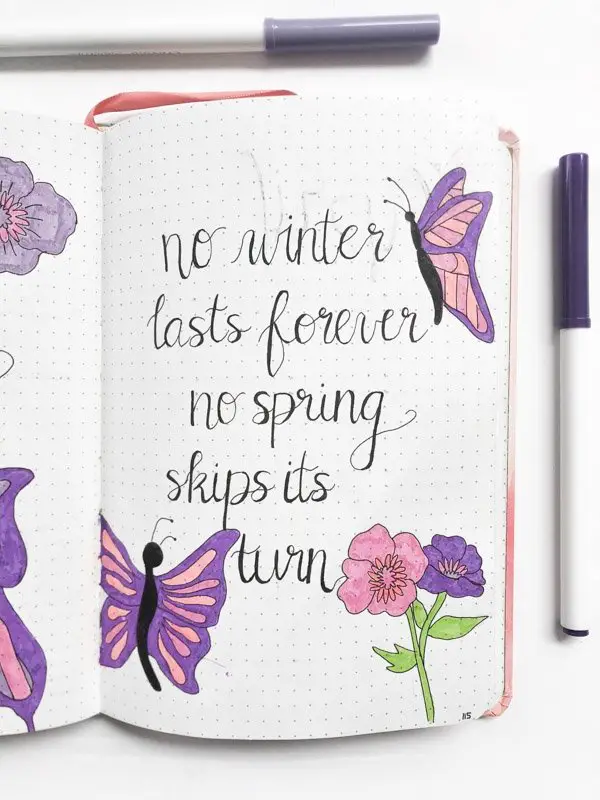 no winter
lasts forever
no spring
skips its
turn
115